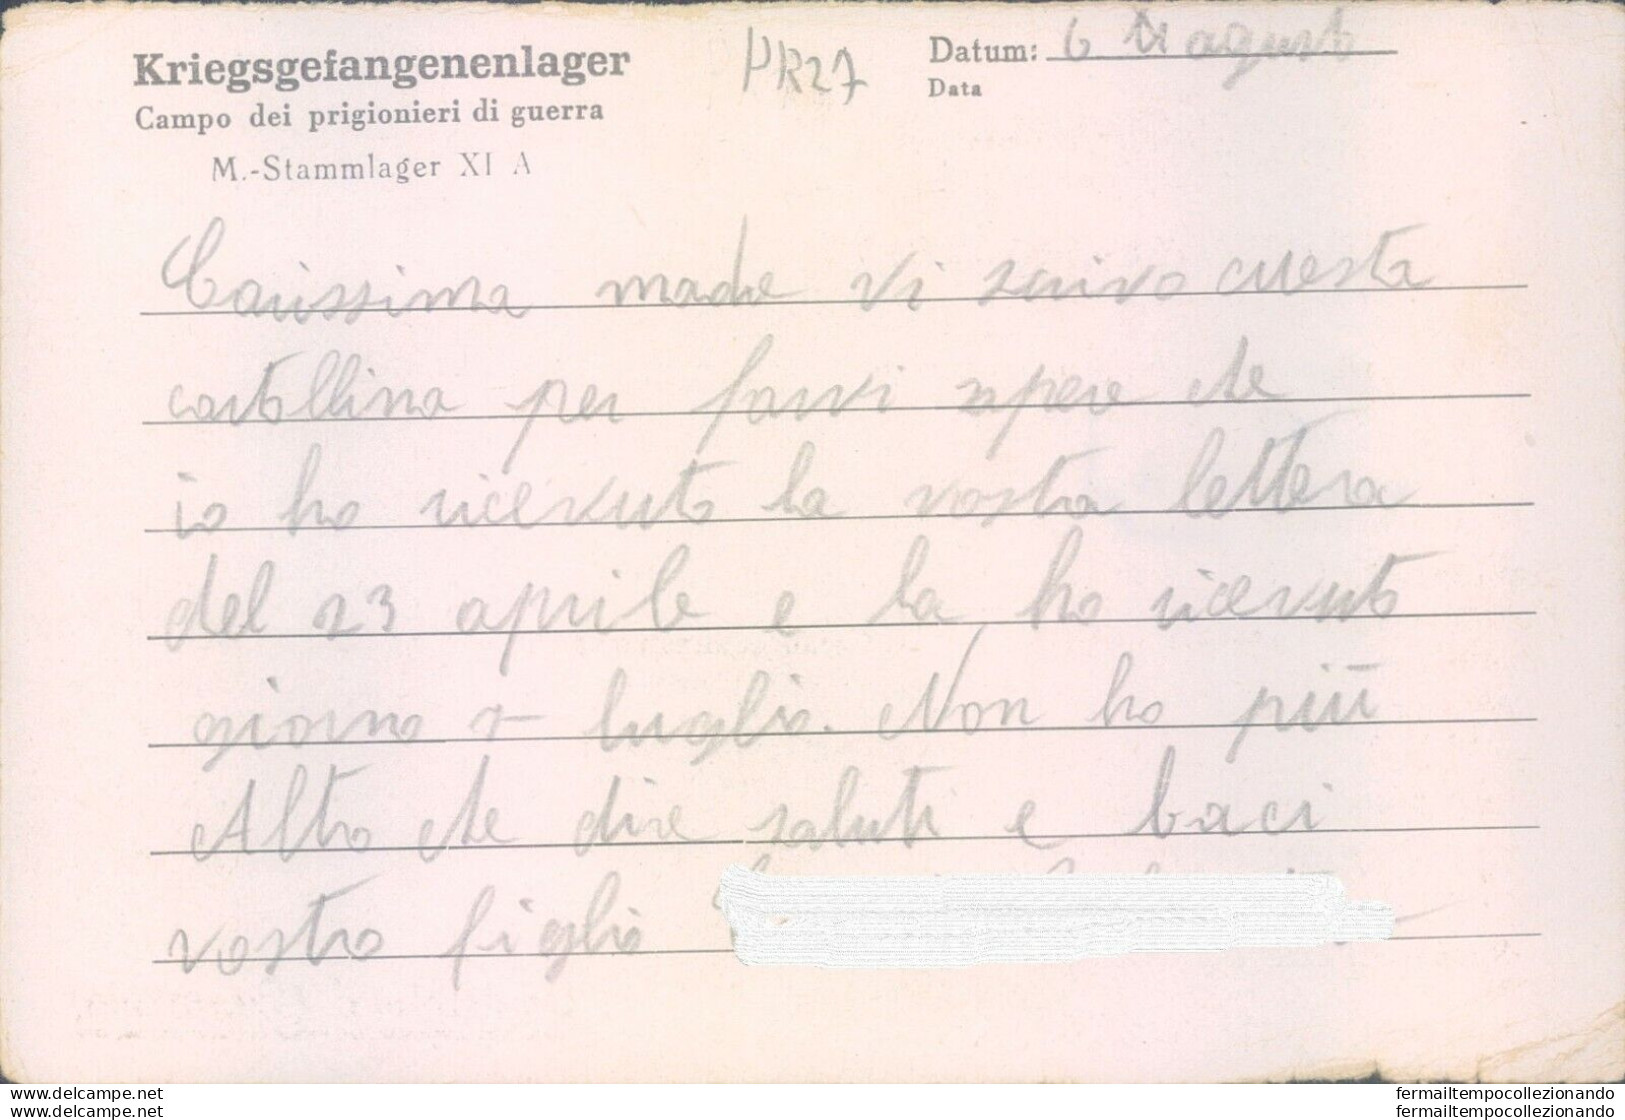 Kriegsgefangenenlager
Campo dei prigionieri di guerra
M.-Stammlager XI A
PR27
Datum: 6 agosto
Data
Carissima madre vi scrivo cuesta
cartollina per farvi sapere che
io ho ricevuto la vostra lettera
del 23 aprile e la ho ricevuto
giorno luglio. Non ho più
Altro che dire saluti e baci
vostro figlio
fermailtempocollezionando
fermailtempocollezionando
delcampe.net
delcampe.net